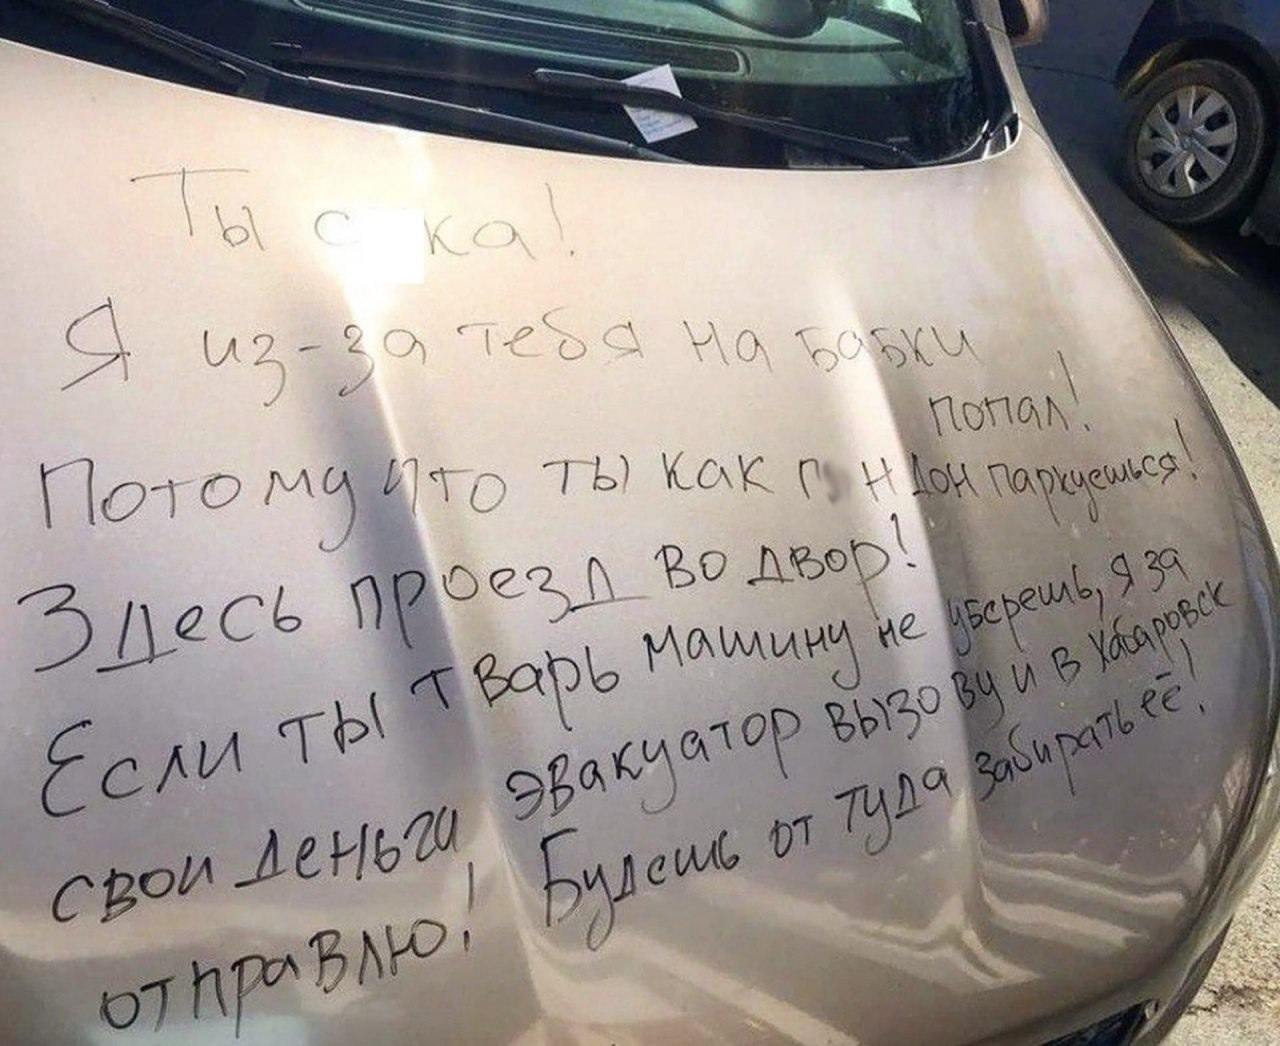 Ты с ка!
Я из-за тебя на бабки
попал!
Потому что ты как г н дон паркуешься!
Здесь проезд во двор!
Если ты тварь машину не уберешь, я за
свои деньги эвакуатор вызову и в Хабаровск
отправлю! Будешь от туда забирать её!